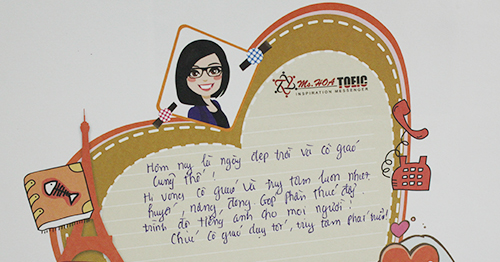 Ms. HOA TOEIC
INSPIRATION MESSENGER
Hôm nay là ngày đẹp trời và cô giáo
cũng thế!
Hi vọng cô giáo và trung tâm luôn nhiệt
huyết, năng động góp phần thúc đẩy
trình độ tiếng anh cho mọi người!
Chúc cô giáo dạy tốt, trung tâm phát triển!